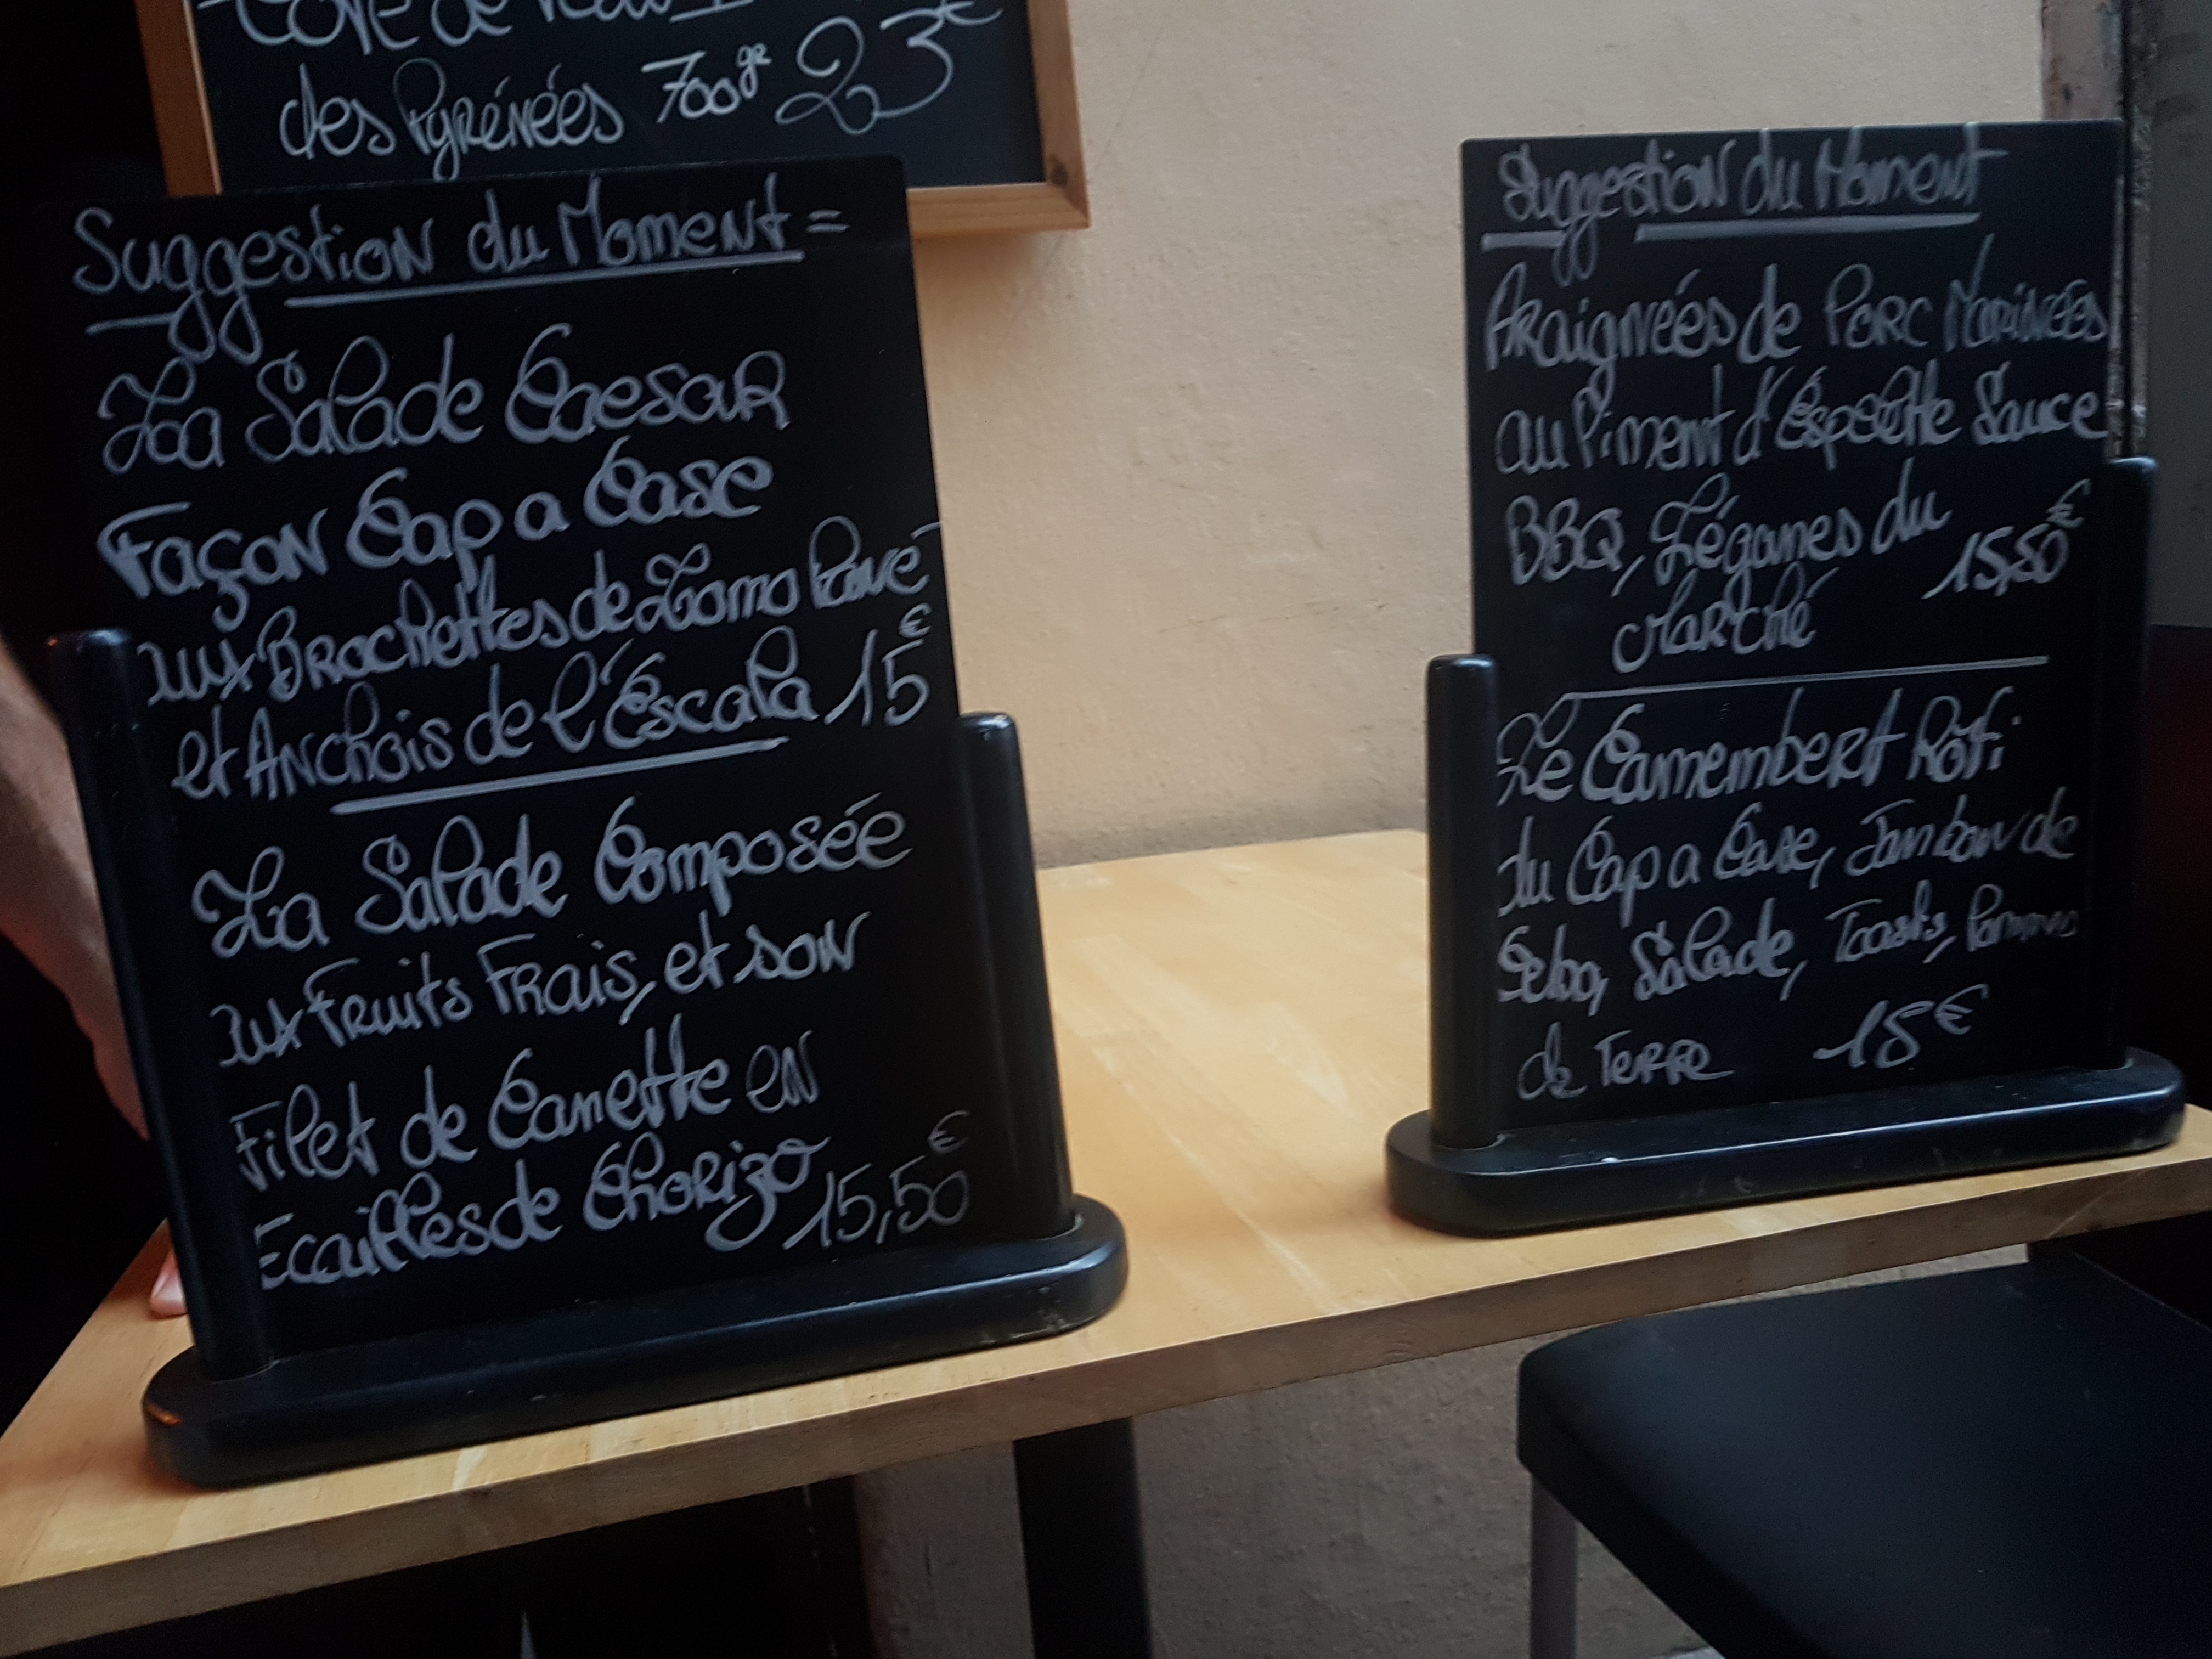 Côte de Veau
des Pyrénées 700gr 23€
Suggestion du Moment =
La Salade Caesar
Façon Cap a Case
aux Brochettes de Lomo Pané
et Anchois de l'Escala 15€
La Salade Composée
aux Fruits Frais, et son
Filet de Canette en
Ecailles de Chorizo 15,50€
Suggestion du Moment
Araignées de Porc Marinées
au Piment d'Espelette Sauce
BBQ, Légumes du
Marché 15,50€
Le Camembert Rôti
du Cap a Case, Jambon de
Salade, Toasts, Pommes
de Terre 18€